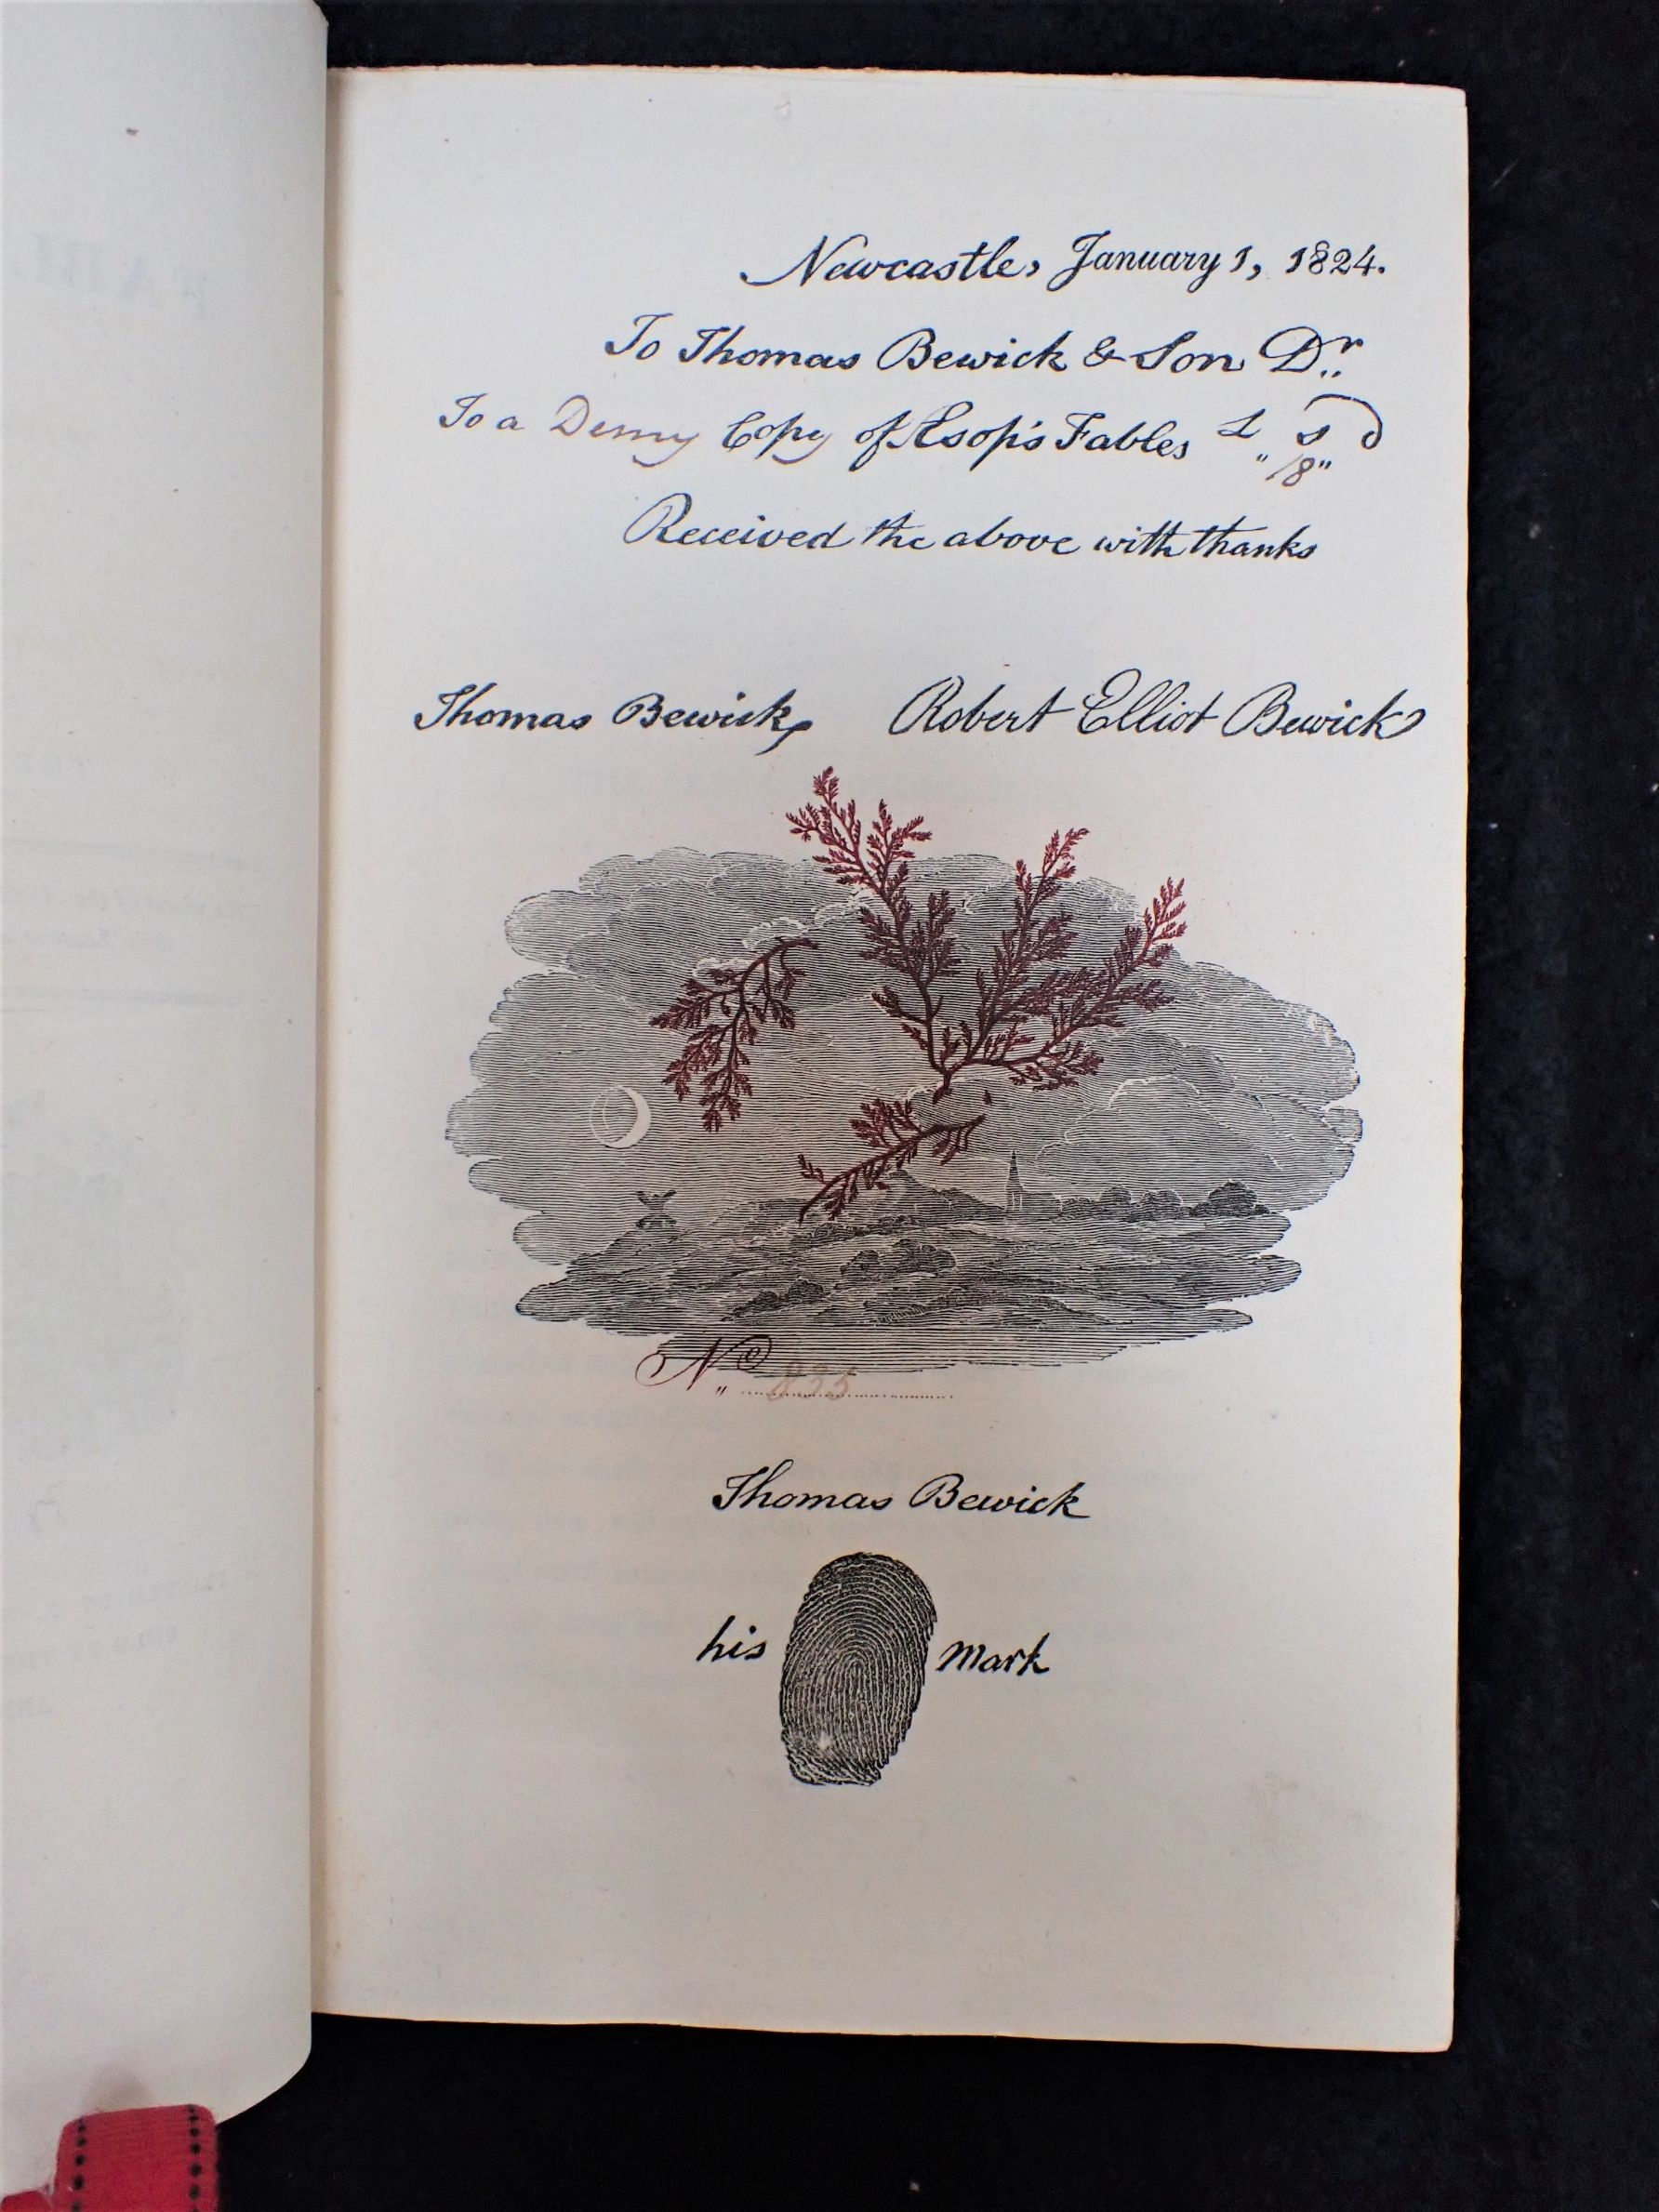 Newcastle, January 1, 1824.
To Thomas Bewick & Son Dr.
To a Demy Copy of Æsop's Fables L s d
" 18 "
Received the above with thanks
Thomas Bewick Robert Elliot Bewick
No 835
Thomas Bewick
his mark